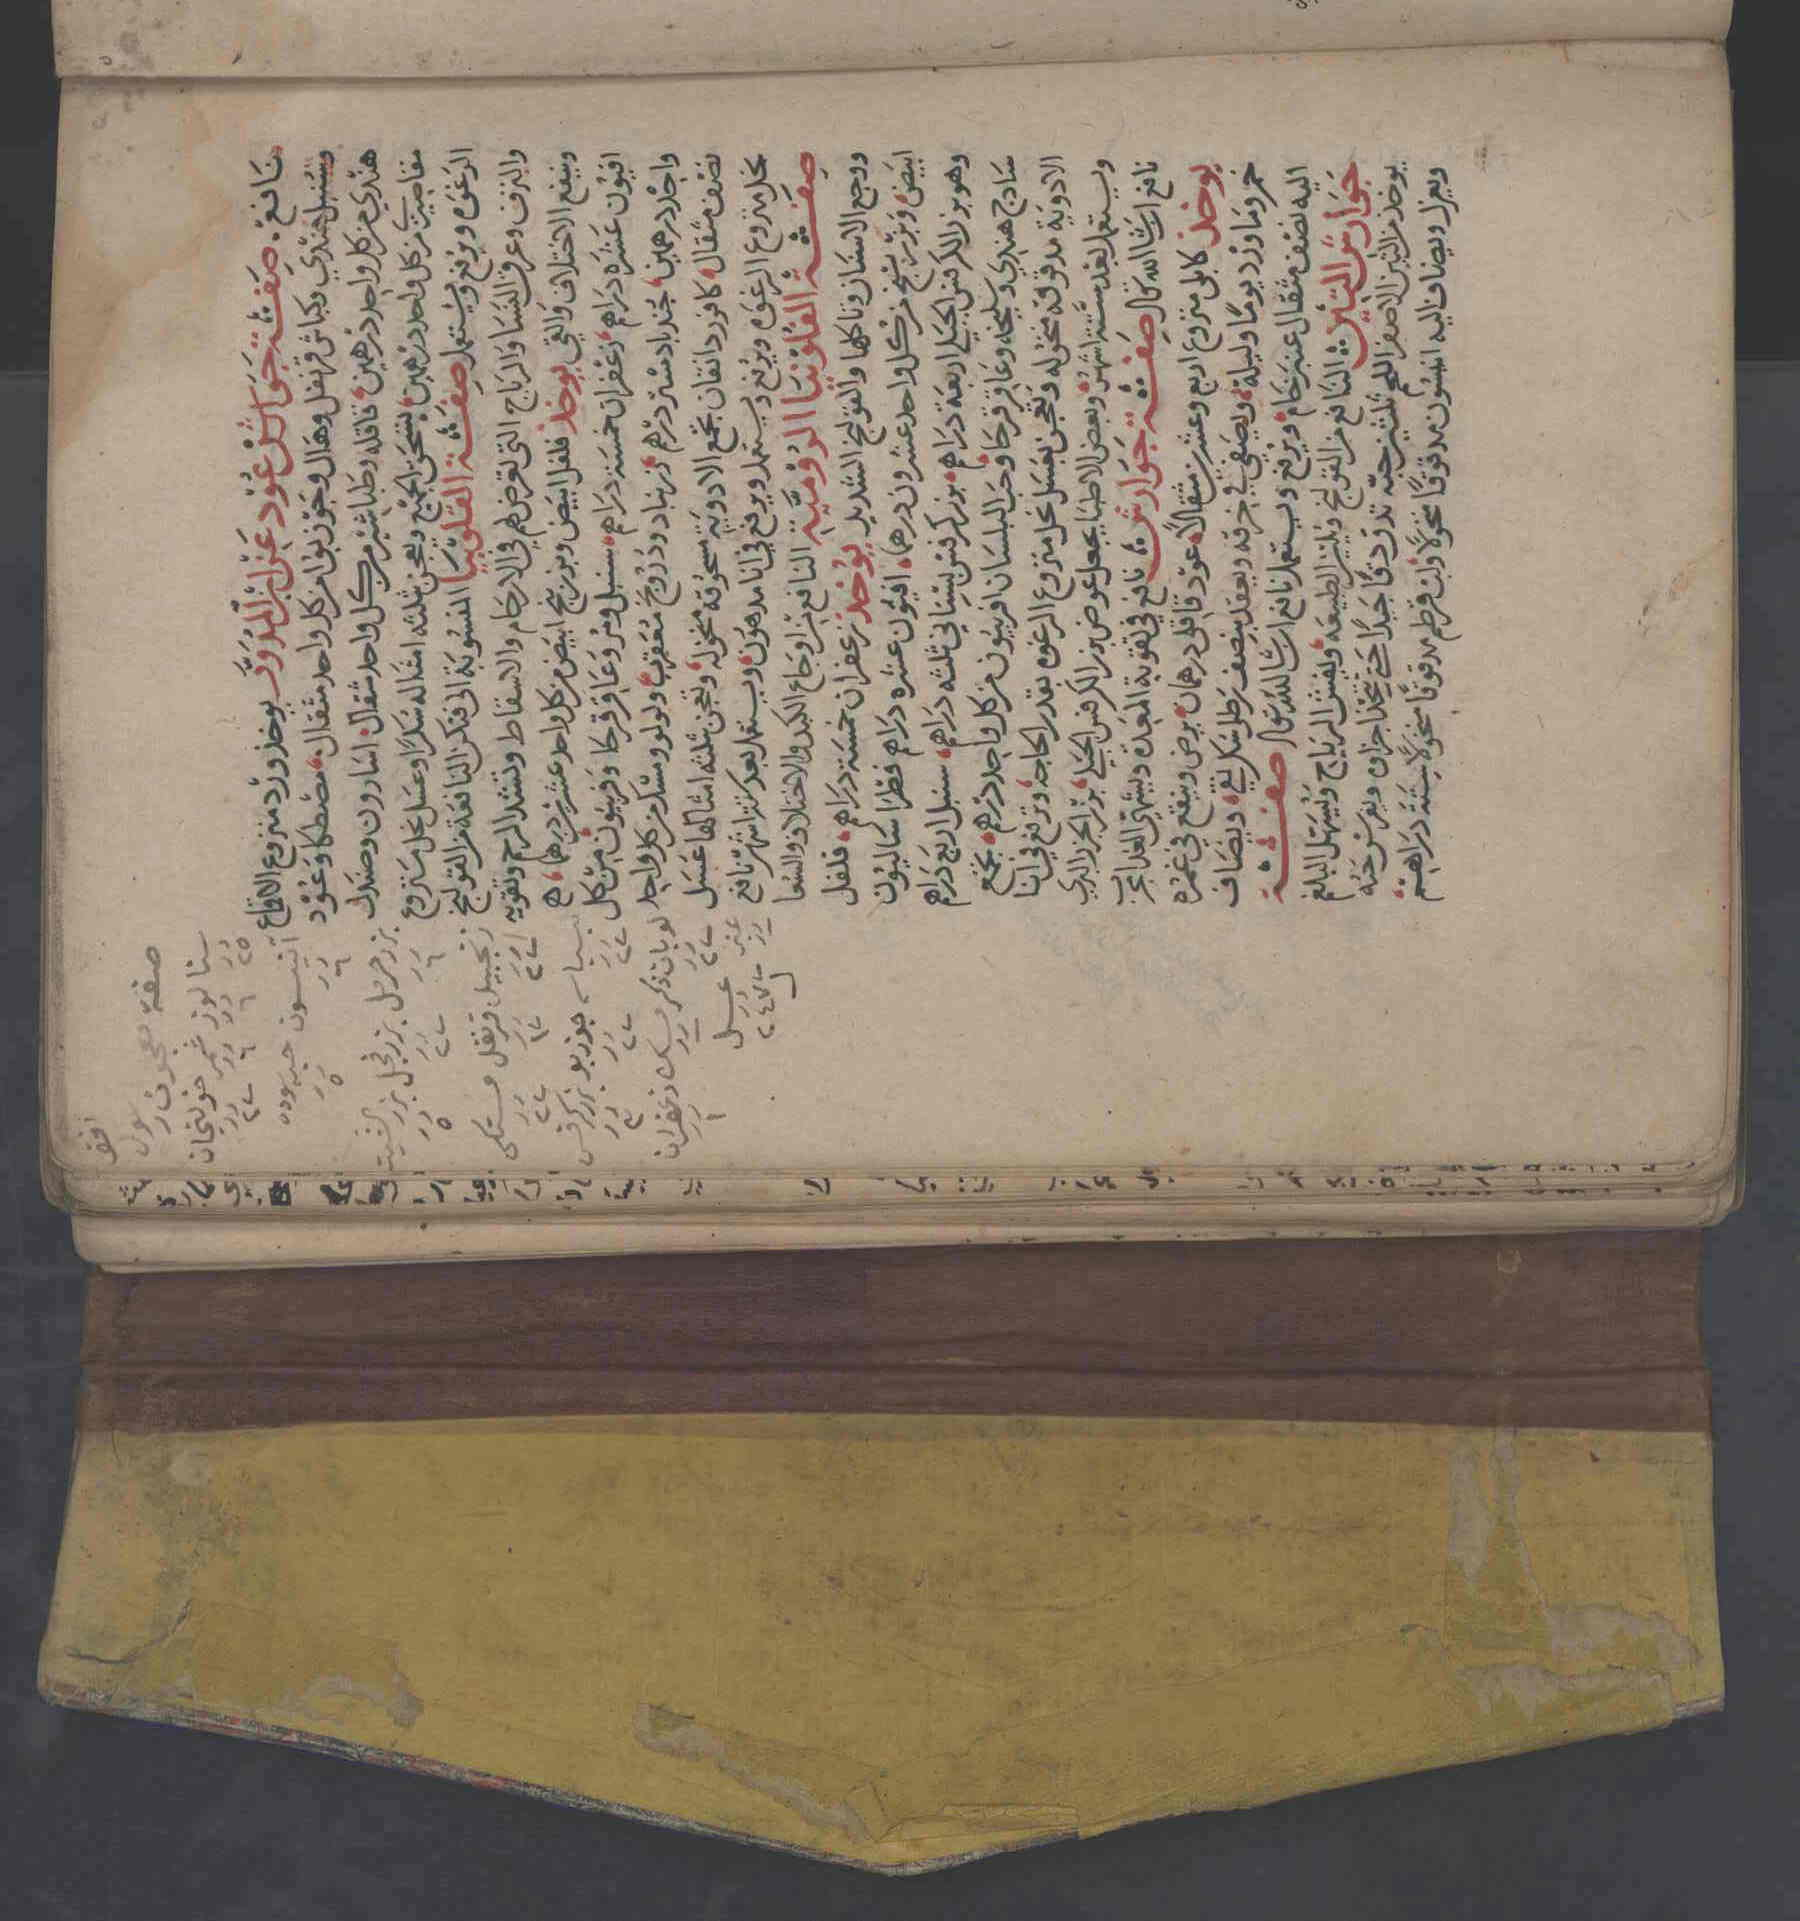 نافع. صفة جوارش عود عن ابن المدور يوخذ ورد منزوع الاقماع
وسنبل هندي وكباش قرنفل وهال وجوز بوا من كل واحد مثقال مصطكا وعود
هندي من كل واحد درهمين قاقله وطباشير من كل واحد مثقال اسارون وصندل
مقاصيري من كل واحد درهمين ينسحق الجميع ويعجن بثلثه امثاله سكرا وعسل نحل منزوع
الرغوه ويرفع ويستعمل صفة الفلونيا المنسوبة الى فنكر النافعة من القولنج
والنزف وعرق النسا والرياح التى تعرض في الارحام والاسقاط وتشد الرحم وتقويه
وينفع الاختلاف والقي يوخذ فلفل ابيض وبزر بنج ابيض من كل واحد عشرين درهما
افيون عشره دراهم زعفران خمسة دراهم سنبل ومر وعاقر قرحا وفربيون من كل
واحد درهمين جندبادستر درهم زرنباد ودرونج عقربي ولولو ومسك من كل واحد
نصف مثقال كافور دانقان تجمع الادوية مسحوقه منخوله وتعجن بثلثه امثالها عسل
نحل منزوع الرغوه ويرفع في انا مدهون ويستعمل بعد ستة اشهر نافع
صفة الفلونيا الروميّة النافع من اوجاع الكبد والاختلاف والسعا
ووجع الاسنان وتاكلها والقولنج الشديد يوخذ زعفران خمسة دراهم فلفل
ابيض وبزر بنج من كل واحد عشرون درهما افيون عشره دراهم فطراساليون
وهو بزر الكرفس الجبلي اربعة دراهم بزر كرفس بستاني ثلثه دراهم سنبل اربع دراهم
سادج هندي وسليخه وعاقر قرحا وحب البلسان افربيون من كل واحد درهم تجمع
الادوية مدقوقه منخوله وتعجن بعسل نحل منزوع الرغوه بقدر الحاجه وترفع في انا
ويستعمل بعد ستة اشهر وبعض الاطبا يجعل عوض بزر الكرفس الجبلي بزر الجزر البري
نافع ان شا الله تعالى صفة جوارش نافع في تقوية المعدة ويشهي الغدا مجرب
يوخذ كابلى منزوع اربع وعشرين مثقالا عود قاقلى درهمان يرض وينقع في غمره
خمر وما ورد يوما وليلة ويصفي في خرقه ويعقد بنصف رطل سكر نقي ويضاف
اليه نصف مثقال عنبر خام ويرفع ويستعمل نافع ان شا الله تعالى صفة
جوارش التين النافع من القولنج ويلين الطبيعه ويفش الرياح ويسهل البلغم
يوخذ من التين الاصفر اللحم ثلثين حبه تدق دقا جيدا حتى يتخذ اجزاه ويمرس حبه
ويعزل ويضاف اليه انيسون مدقوقا منخولا ولب قرطم مدقوقا منخولا ستة دراهم
صفة معجون
سنا لوز شمر خولنجان
انيسون حبه سوده
بزر حرمل بزر فجل بزر الشبت
زنجبيل قرنفل مستكى
بسباسه جوزبو بزر كرفس
لوبان ذكر مسك زعفران
عنبر عسل